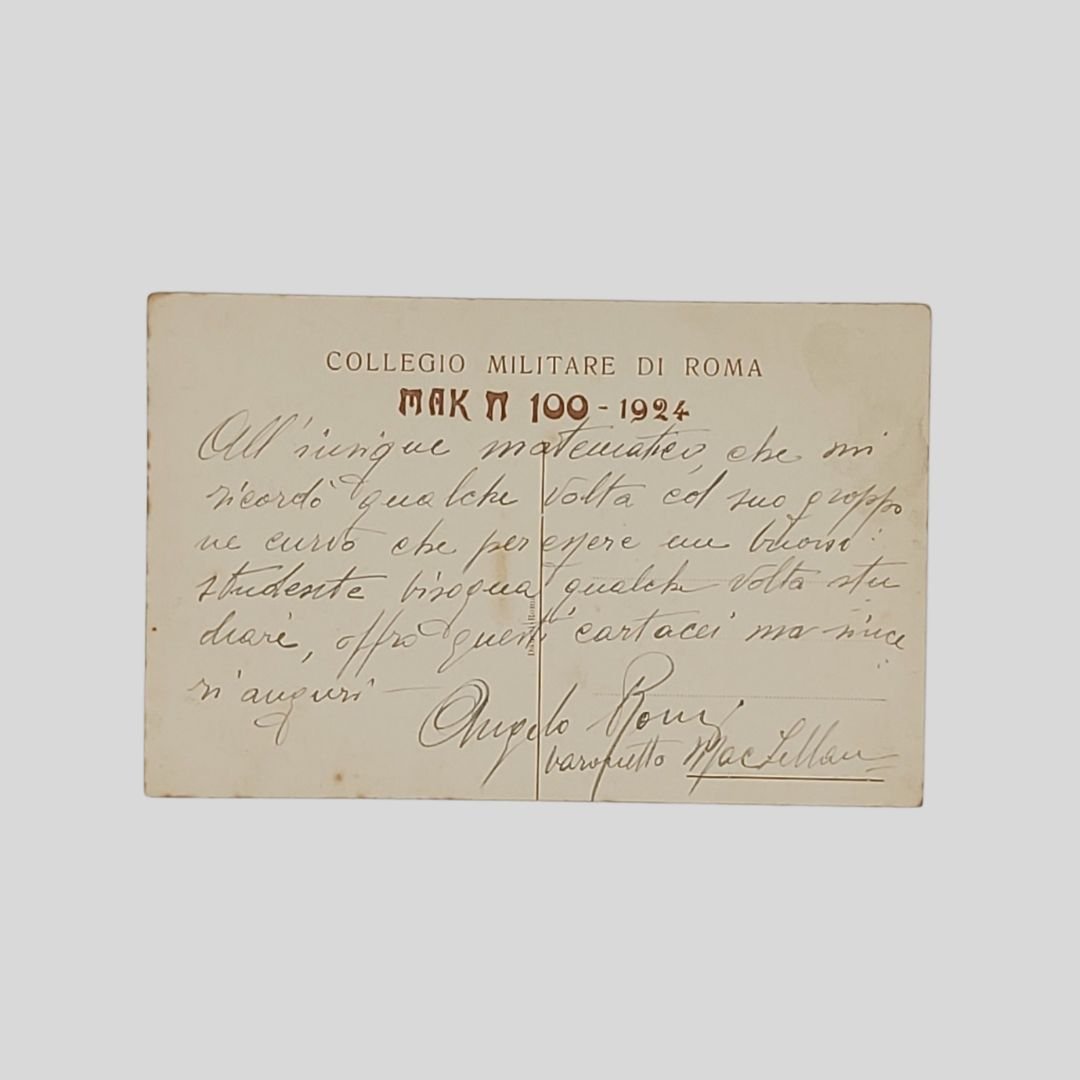 COLLEGIO MILITARE DI ROMA
MAK π 100 - 1924
All'insigne matematico, che mi
ricordò qualche volta col suo groppo
ne curvo che per essere un buon
studente bisogna qualche volta stu
diare, offro questi cartacei ma since
ri auguri
Angelo
baronetto MacLellan